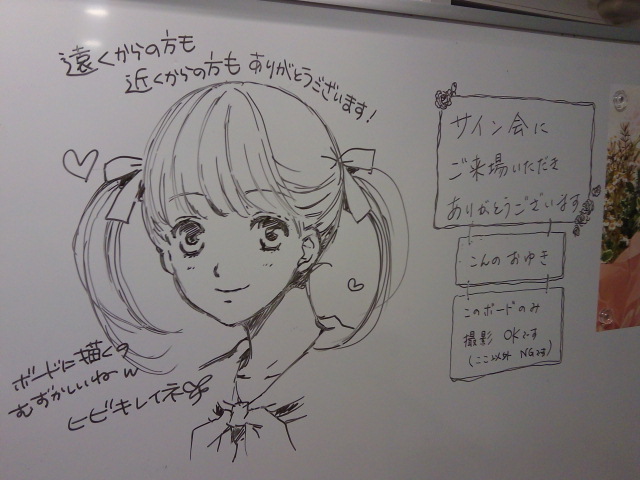 遠くからの方も
近くからの方も ありがとうございます!
サイン会に
ご来場いただき
ありがとうございます
こんの おゆき
このボードのみ
撮影 OKです
(ここ以外 NGです)
ボードに描くの
むずかしいねーw
ヒビキレイネ